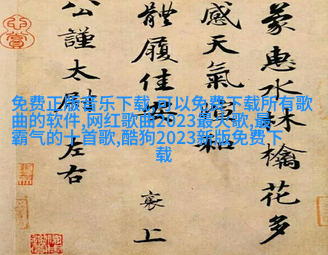 蒙惠水林檎花多
感天氣暄和
體履佳安
襄上
公謹太尉左右
免费正版音乐下载,可以免费下载所有歌
曲的软件,网红歌曲2023最火歌,最
霸气的十首歌,酷狗2023新版免费下
载